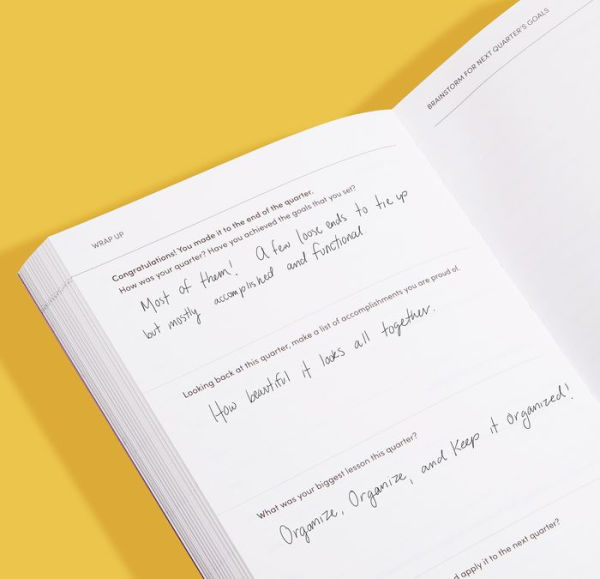 WRAP UP
Congratulations! You made it to the end of the quarter.
How was your quarter? Have you achieved the goals that you set?
Most of them! A few loose ends to tie up
but mostly accomplished and functional
Looking back at this quarter, make a list of accomplishments you are proud of.
How beautiful it looks all together.
What was your biggest lesson this quarter?
Organize, Organize, and Keep it Organized!
d apply it to the next quarter?
BRAINSTORM FOR NEXT QUARTER'S GOALS